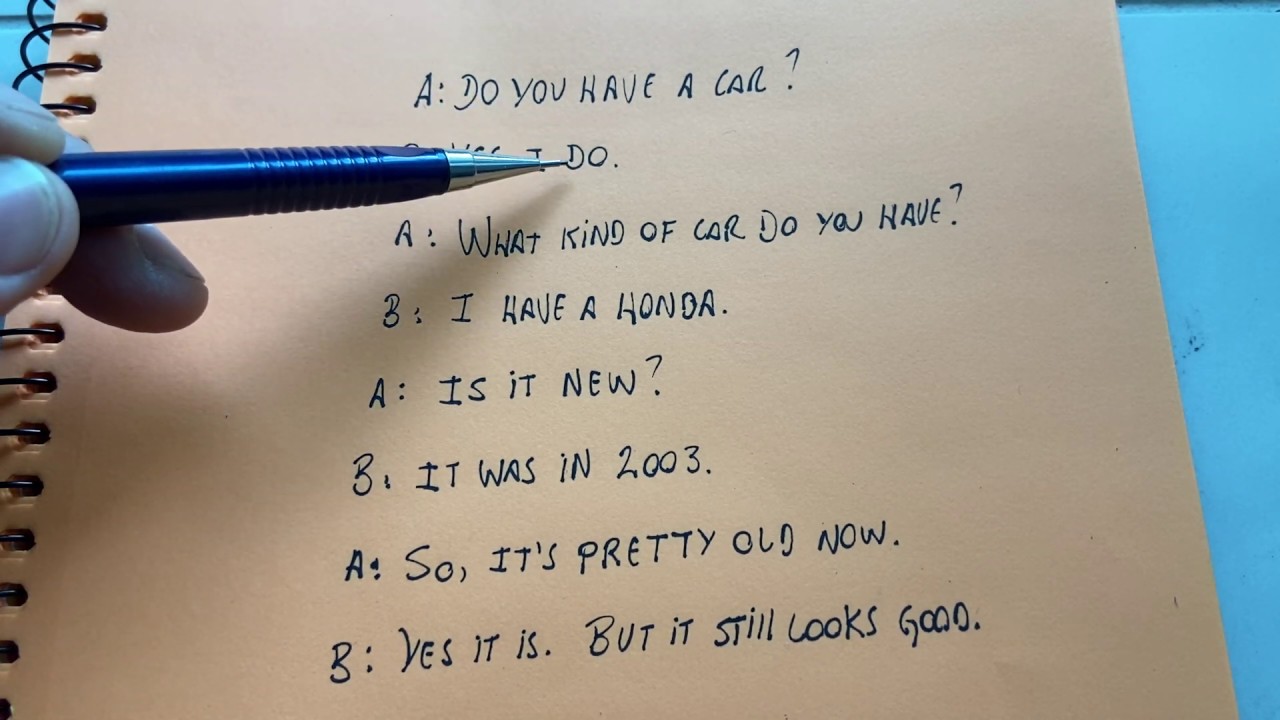 A: DO YOU HAVE A CAR?
B: YES I DO.
A: WHAT KIND OF CAR DO YOU HAVE?
B: I HAVE A HONDA.
A: IS iT NEW?
B: IT WAS iN 2003.
A: SO, IT'S PRETTY OLD NOW.
B: YES iT iS. BUT iT STill LOOKS GOOD.